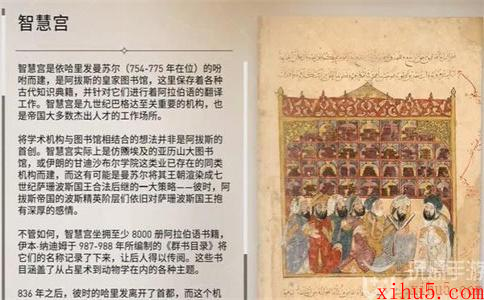 智慧宫
智慧宫是依哈里发曼苏尔（754-775 年在位）的吩
咐而建，是阿拔斯的皇家图书馆，这里保存着各种
古代知识典籍，并针对它们进行着阿拉伯语的翻译
工作。智慧宫是九世纪巴格达至关重要的机构，也
是帝国大多数杰出人才的工作场所。
将学术机构与图书馆相结合的想法并非是阿拔斯的
首创。智慧宫实际上是仿膺埃及的亚历山大图书
馆，或伊朗的甘迪沙布尔学院这类业已存在的同类
机构而建，而这有可能是曼苏尔将其王朝渲染成七
世纪萨珊波斯国王合法后继的一大策略——彼时，阿
拔斯帝国的波斯精英阶层们依旧对萨珊波斯国王抱
有深厚的感情。
不管如何，智慧宫坐拥至少 8000 册阿拉伯语书籍，
伊本·纳迪姆于 987-988 年所编制的《群书目录》将
它们的名称记录了下来，让后人得以传阅。这些书
目涵盖了从占星术到动物学在内的各种主题。
836 年之后，彼时的哈里发离开了首都，而这个机
xihu5.com